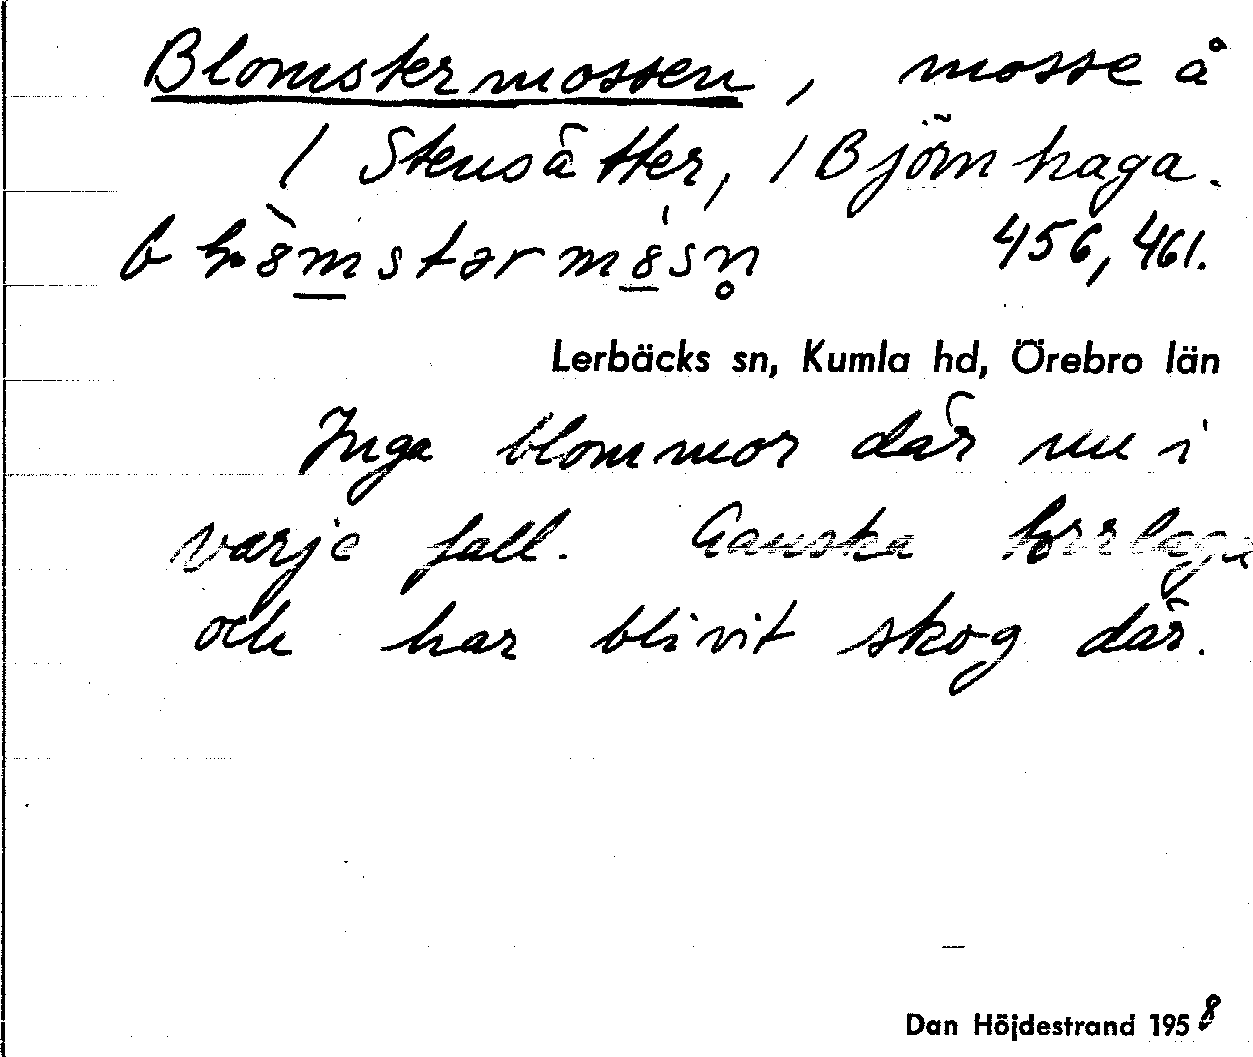 Blomstermossen, mosse å
1 Stensätter, 1 Björnhaga.
456, 461.
Lerbäcks sn, Kumla hd, Örebro län
Inga blommor där nu i
varje fall. Ganska torrlagd
och har blivit skog där.
Dan Höjdestrand 1958